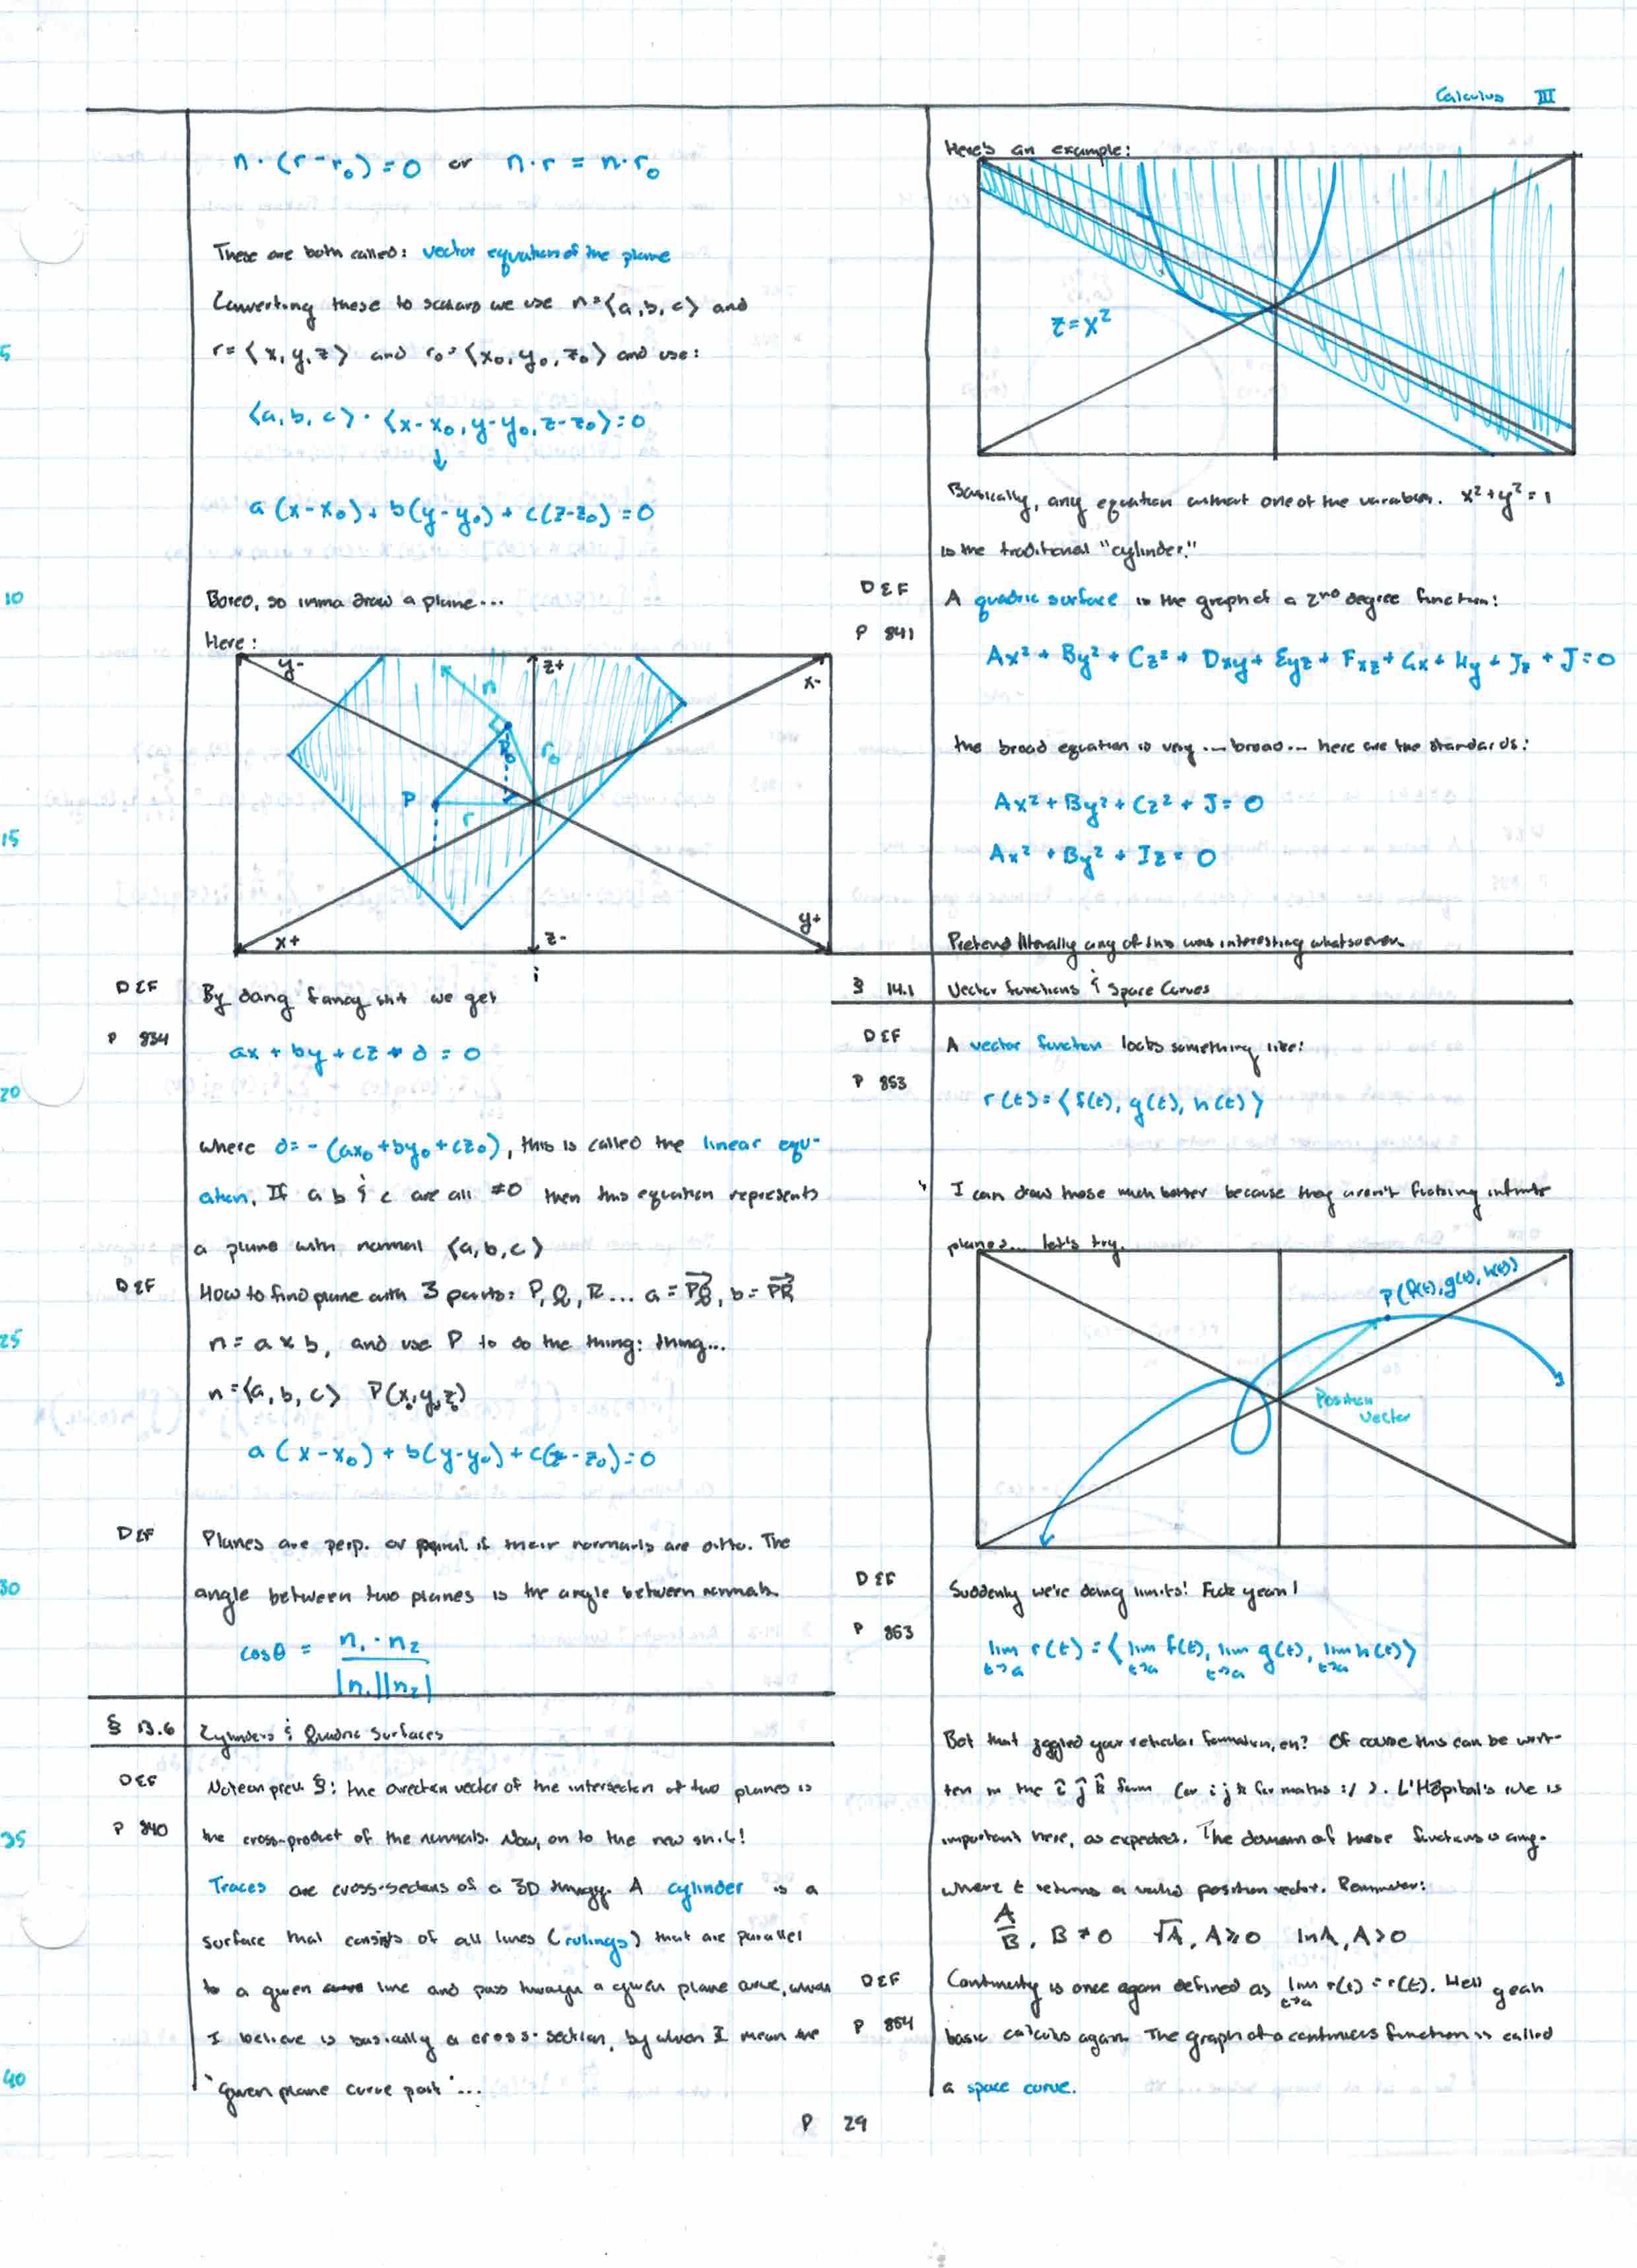 Calculus III
n · (r - r₀) = 0 or n · r = n · r₀
These are both called: vector equation of the plane
Converting these to scalars we use n = ⟨a, b, c⟩ and
5
r = ⟨x, y, z⟩ and r₀ = ⟨x₀, y₀, z₀⟩ and use:
⟨a, b, c⟩ · ⟨x - x₀, y - y₀, z - z₀⟩ = 0
↓
a (x - x₀) + b(y - y₀) + c(z - z₀) = 0
10
Bored, so imma draw a plane...
Here:
y-
z+
x-
n
P₀
r₀
P
r
15
x+
z-
y+
DEF
By doing fancy shit we get
P 834
ax + by + cz + d = 0
20
where d = - (ax₀ + by₀ + cz₀), this is called the linear equ-
ation. If a b & c are all ≠0 then this equation represents
a plane with normal ⟨a, b, c⟩
DEF
How to find plane with 3 points: P, Q, R... a = PQ, b = PR
25
n = a × b, and use P to do the thing: thing...
n = ⟨a, b, c⟩ P(x₀, y₀, z₀)
a (x - x₀) + b(y - y₀) + c(z - z₀) = 0
DEF
Planes are perp. or if their normals are ortho. The
30
angle between two planes is the angle between normals.
cosθ = n₁ · n₂ / |n₁||n₂|
§ 13.6 Cylinders & Quadric Surfaces
DEF
Note on prev. §: the direction vector of the intersection of two planes is
P 840
35
the cross-product of the normals. Now, on to the new sh.t!
Traces are cross-sections of a 3D thingy. A cylinder is a
surface that consists of all lines (rulings) that are parallel
to a given line and pass through a given plane curve, which
I believe is basically a cross-section, by which I mean the
40
"given plane curve part"...
Here's an example:
z = x²
Basically, any equation without one of the variables. x² + y² = 1
is the traditional "cylinder."
DEF
A quadric surface is the graph of a 2nd degree function:
P 841
Ax² + By² + Cz² + Dxy + Eyz + Fxz + Gx + Hy + Iz + J = 0
the broad equation is very ... broad... here are the standards:
Ax² + By² + Cz² + J = 0
Ax² + By² + Iz = 0
Pretend literally any of this was interesting whatsoever.
§ 14.1 Vector functions & Space Curves
DEF
A vector function looks something like:
P 853
r(t) = ⟨f(t), g(t), h(t)⟩
I can draw these much better because they aren't fucking infinite
planes... let's try.
P(f(t), g(t), h(t))
Position
Vector
DEF
Suddenly we're doing limits! Fuck yeah!
P 853
lim t→a r(t) = ⟨lim t→a f(t), lim t→a g(t), lim t→a h(t)⟩
Bet that joggled your reticular formation, eh? Of course this can be writ-
ten in the î ĵ k̂ form (or i j k for maths :/ ). L'Hôpital's rule is
important here, as expected. The domain of these functions is any-
where t returns a valid position vector. Remember:
A/B, B ≠ 0 √A, A ≥ 0 ln A, A > 0
DEF
Continuity is once again defined as lim t→a r(t) = r(t). Hell yeah
P 854
basic calculus again. The graph of a continuous function is called
a space curve.
P 29